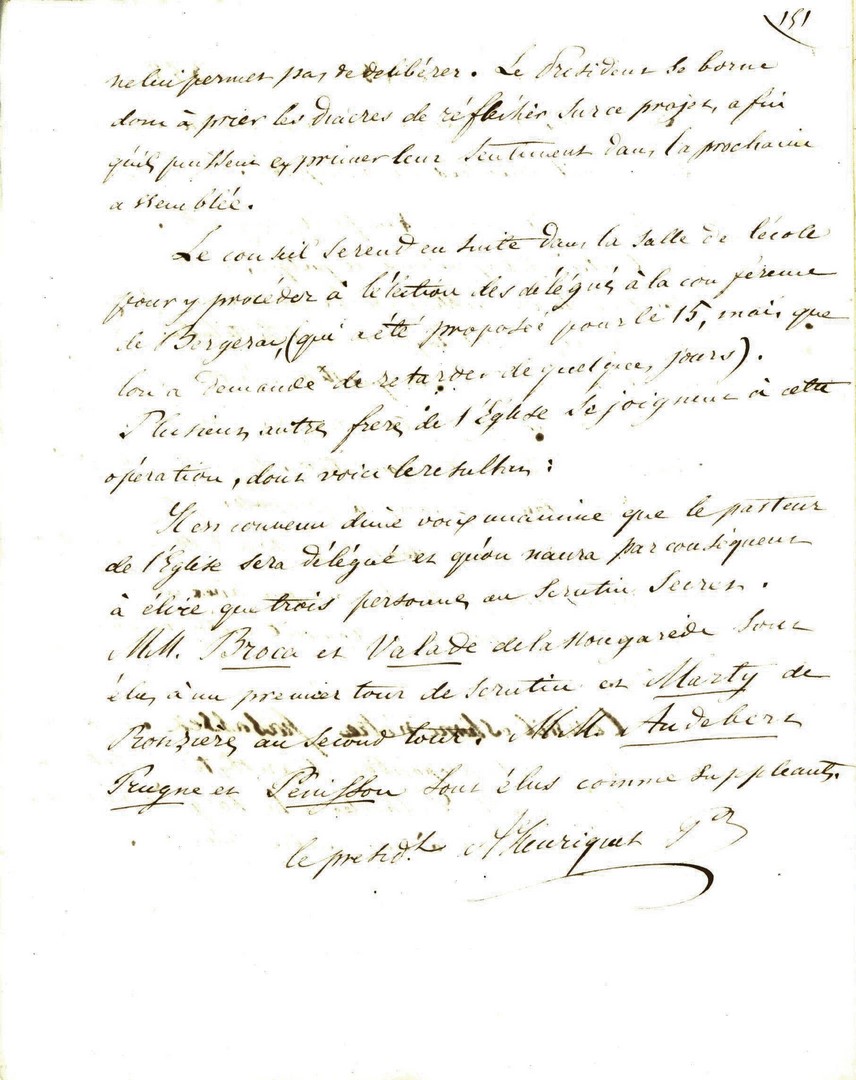 151
ne lui permet pas de délibérer. Le Président se borne
donc à prier les Diacres de réfléchir sur ce projet, afin
qu'ils puissent exprimer leur sentiment dans la prochaine
assemblée.
Le conseil se rend en suite dans la salle de l'école
pour y procéder à l'élection des délégués à la conférence
de Bergerac, (qui a été proposée pour le 15, mais que
l'on a demandé de retarder de quelques jours).
Plusieurs autres frères de l'Église se joignent à cette
opération, dont voici le resultat :
Il est convenu d'une voix unanime que le pasteur
de l'Église sera délégué et qu'on n'aura par conséquent
à élire que trois personnes au scrutin secret.
MM. Broca et Valade de la Nougarède sont
élus à un premier tour de scrutin et Marty de
Rouziere au second tour. MM. Audebert
Prugne et Pénisson sont élus comme suppléants.
le présidt Henriquet